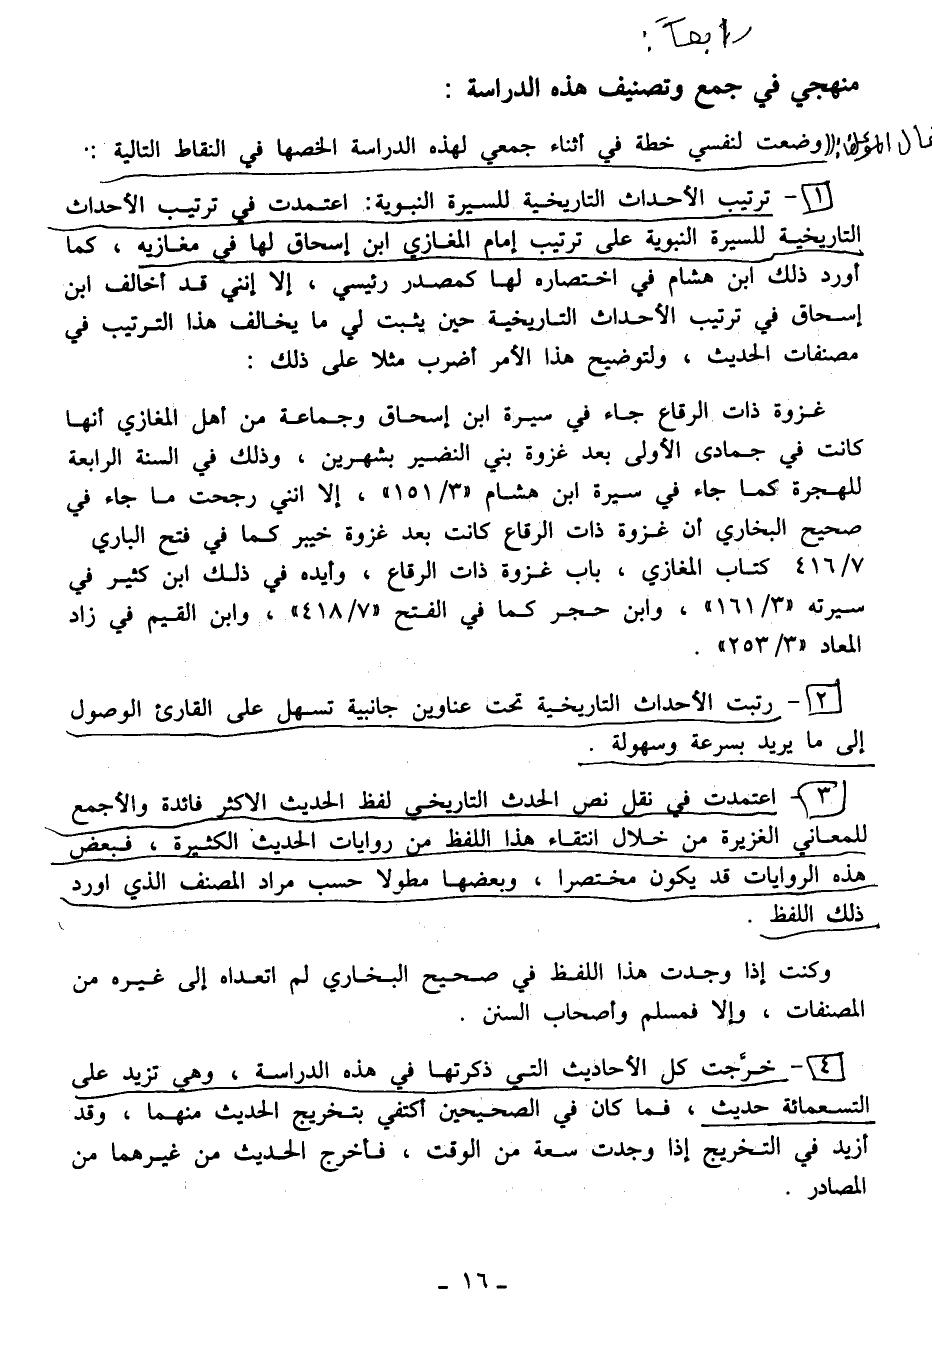 رابعاً :
منهجي في جمع وتصنيف هذه الدراسة :
قال المؤلف: ((وضعت لنفسي خطة في أثناء جمعي لهذه الدراسة الخصها في النقاط التالية :
١- ترتيب الأحداث التاريخية للسيرة النبوية: اعتمدت في ترتيب الأحداث
التاريخية للسيرة النبوية على ترتيب إمام المغازي ابن إسحاق لها في مغازيه ، كما
أورد ذلك ابن هشام في اختصاره لها كمصدر رئيسي ، إلا إنني قد أخالف ابن
إسحاق في ترتيب الأحداث التاريخية حين يثبت لي ما يخالف هذا الترتيب في
مصنفات الحديث ، ولتوضيح هذا الأمر أضرب مثلا على ذلك :
غزوة ذات الرقاع جاء في سيرة ابن إسحاق وجماعة من أهل المغازي أنها
كانت في جمادى الأولى بعد غزوة بني النضير بشهرين ، وذلك في السنة الرابعة
للهجرة كما جاء في سيرة ابن هشام «٣/١٥١» ، إلا انني رجحت ما جاء في
صحيح البخاري أن غزوة ذات الرقاع كانت بعد غزوة خيبر كما في فتح الباري
٧/٤١٦ كتاب المغازي ، باب غزوة ذات الرقاع ، وأيده في ذلك ابن كثير في
سيرته «٣/١٦١» ، وابن حجر كما في الفتح «٧/٤١٨» ، وابن القيم في زاد
المعاد «٣/٢٥٣» .
٢- رتبت الأحداث التاريخية تحت عناوين جانبية تسهل على القارئ الوصول
إلى ما يريد بسرعة وسهولة .
٣- اعتمدت في نقل نص الحدث التاريخي لفظ الحديث الاكثر فائدة والأجمع
للمعاني الغزيرة من خلال انتقاء هذا اللفظ من روايات الحديث الكثيرة ، فبعض
هذه الروايات قد يكون مختصرا ، وبعضها مطولا حسب مراد المصنف الذي اورد
ذلك اللفظ .
وكنت إذا وجدت هذا اللفظ في صحيح البخاري لم اتعداه إلى غيره من
المصنفات ، وإلا فمسلم وأصحاب السنن .
٤- خرَّجت كل الأحاديث التي ذكرتها في هذه الدراسة ، وهي تزيد على
التسعمائة حديث ، فما كان في الصحيحين أكتفي بتخريج الحديث منهما ، وقد
أزيد في التخريج إذا وجدت سعة من الوقت ، فأخرج الحديث من غيرهما من
المصادر .
- ١٦ -